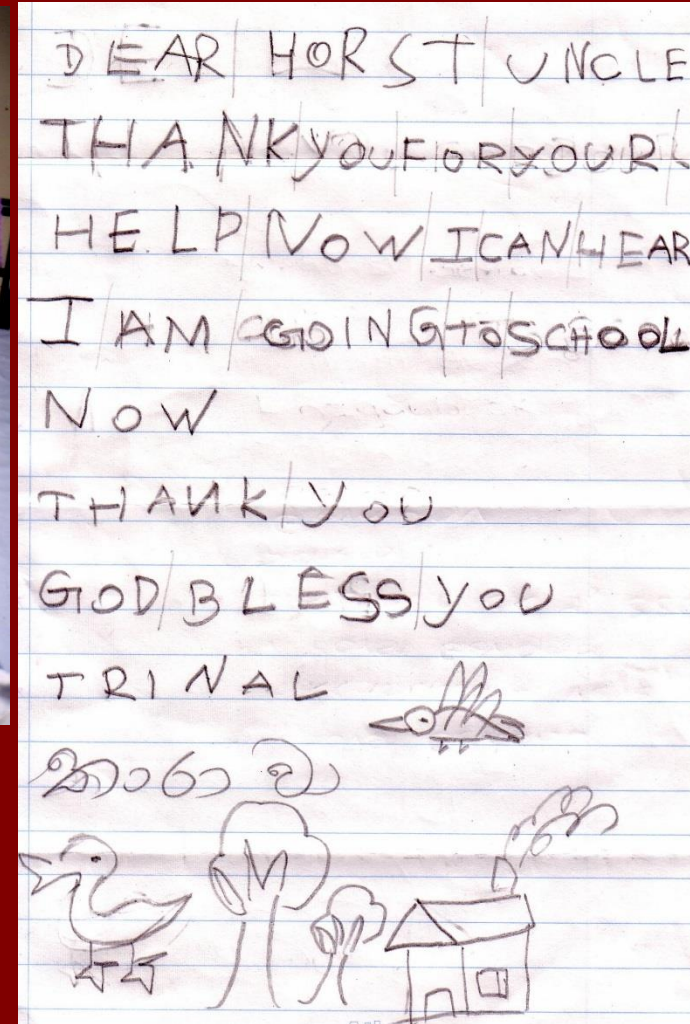 DEAR HORST UNCLE
THANK YOU FOR YOUR
HELP NOW I CAN HEAR
I AM GOING TO SCHOOL
NOW
THANK YOU
GOD BLESS YOU
TRINAL